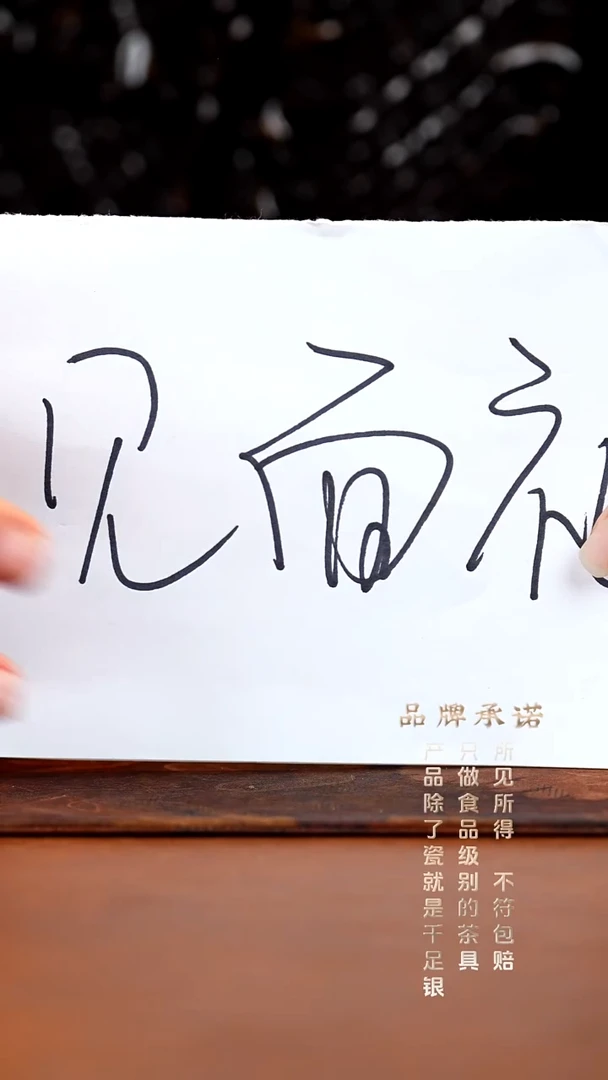 见面礼
品牌承诺
所见所得 不符包赔
只做食品级别的茶具
产品除了瓷就是千足银